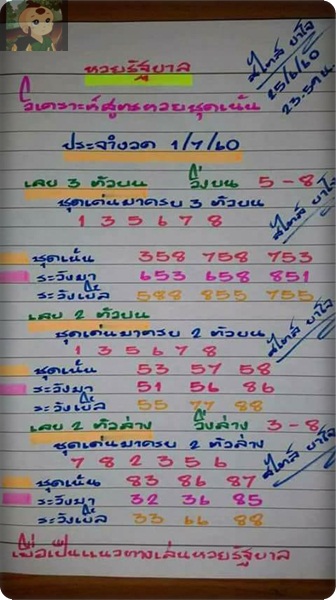 หวยรัฐบาล
วิเคราะห์สูตรหวยชุดเน้น
ประจำงวด 1/7/60
สไทล์ ยาใจ
25/6/60
23:59 น.
เลข 3 ตัวบน วิ่งบน 5-8
ชุดเด่นมาครบ 3 ตัวบน
1 3 5 6 7 8
สไทล์ ยาใจ
ชุดเน้น 358 758 753
ระวังมา 653 658 851
ระวังเบิ้ล 588 855 755
เลข 2 ตัวบน
ชุดเด่นมาครบ 2 ตัวบน
1 3 5 6 7 8
สไทล์ ยาใจ
ชุดเน้น 53 57 58
ระวังมา 51 56 86
ระวังเบิ้ล 55 77 88
เลข 2 ตัวล่าง วิ่งล่าง 3-8
ชุดเด่นมาครบ 2 ตัวล่าง
7 8 2 3 5 6
สไทล์ ยาใจ
ชุดเน้น 83 86 87
ระวังมา 32 36 85
ระวังเบิ้ล 33 66 88
เพื่อเป็นแนวทางเล่นหวยรัฐบาล